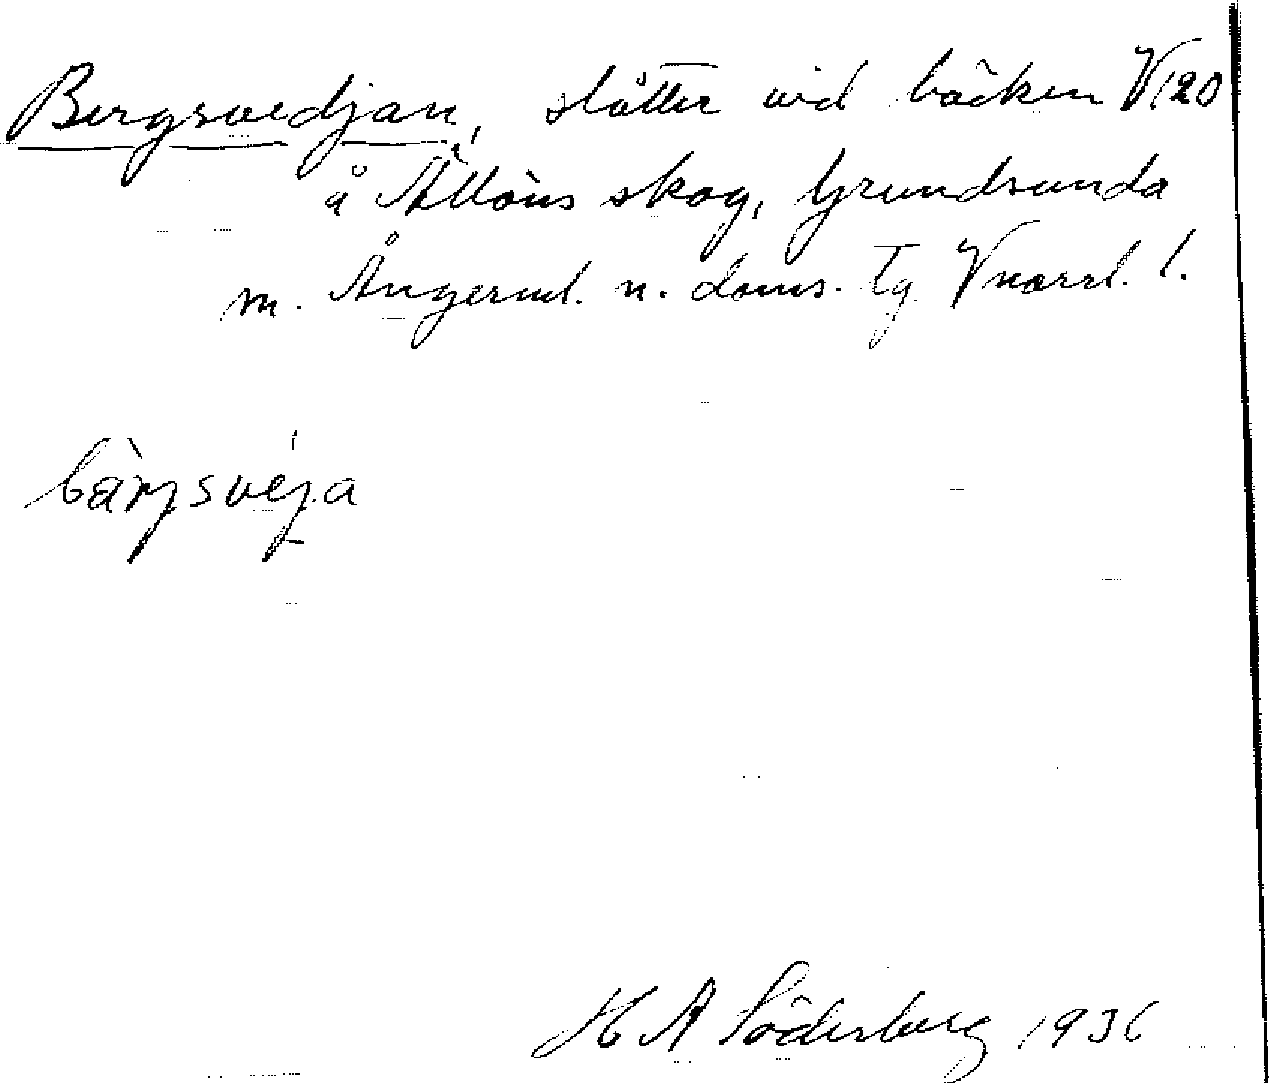 Bergsvedjan, slåtter vid bäcken V120
å Ällöns skog, Grundsunda
m. Ångerml. n. doms. tg Vnorrl. l.
bàrjsvéja
H A Söderberg 1936